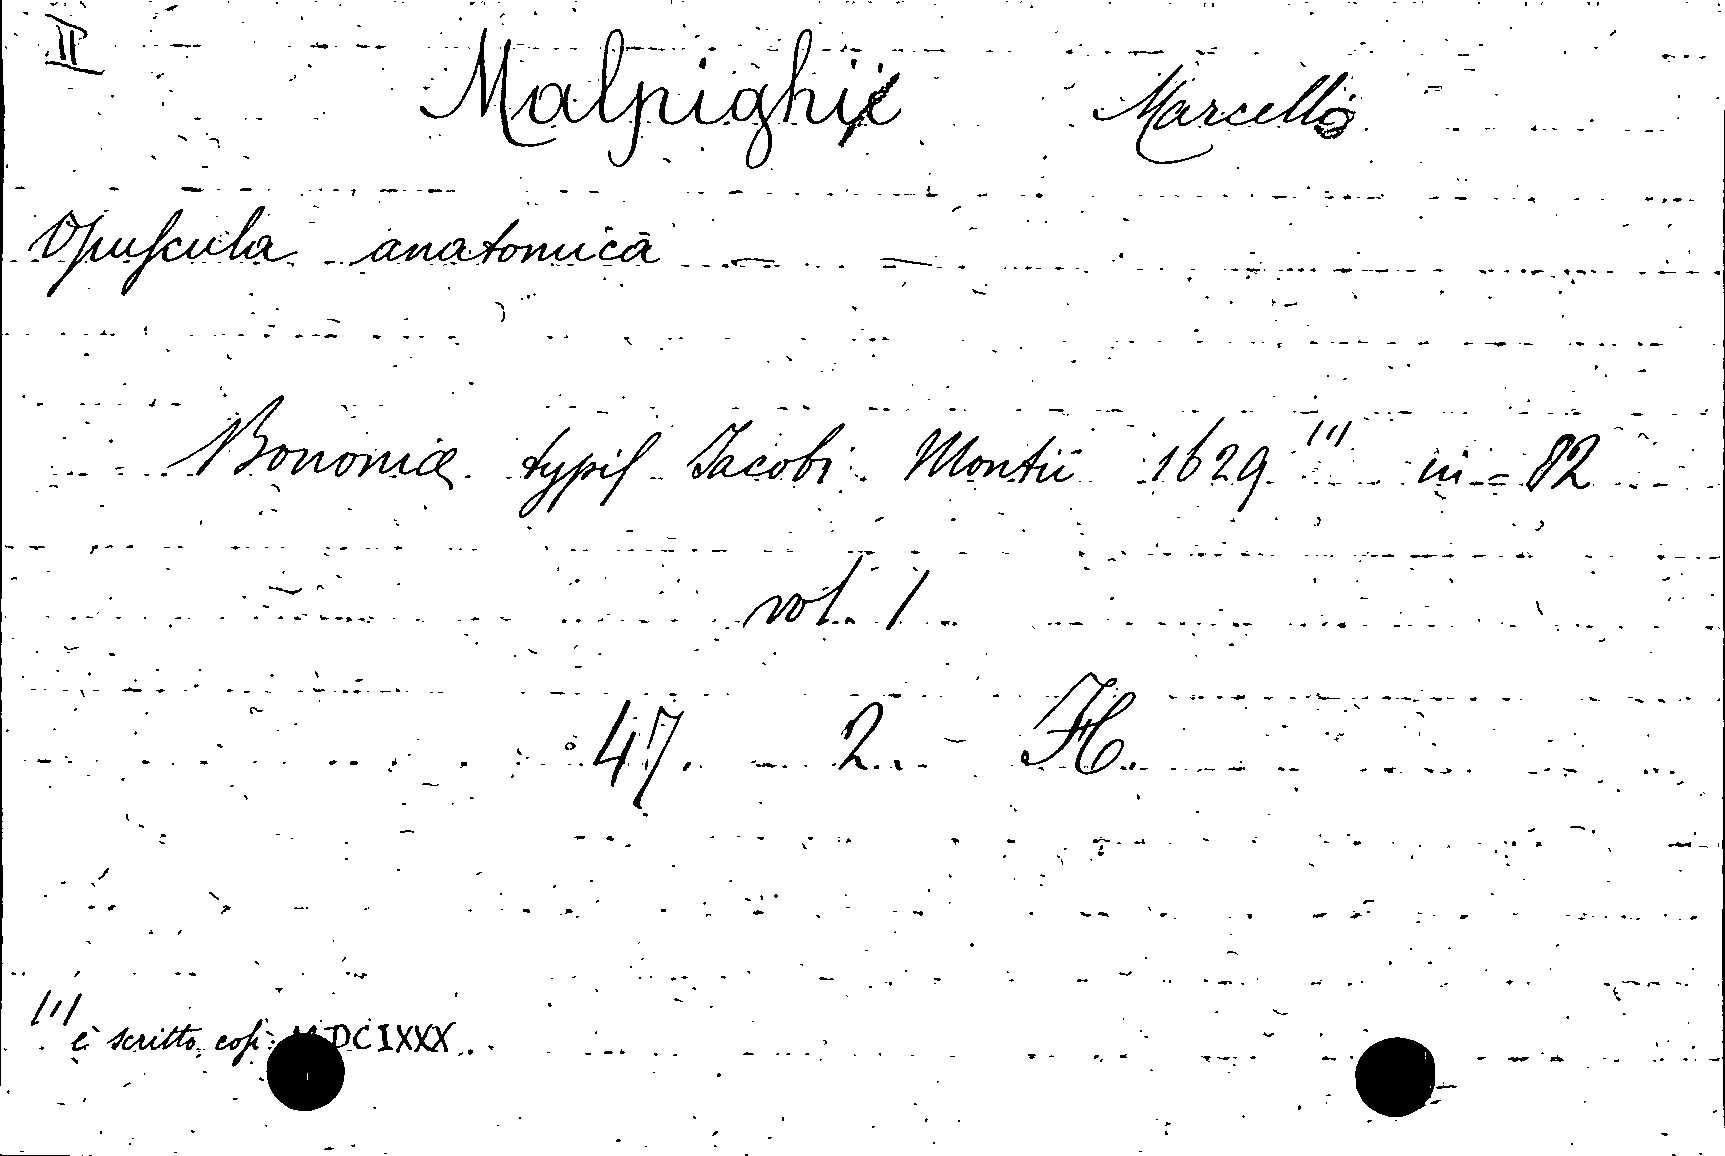 II
Malpighi Marcello
Opuſcula anatomica
Bononiæ typiſ Jacobi Montii 1629 (1) in = 82
vol. 1
47. 2. H.
(1) è scritto coſi: MDCIXXX